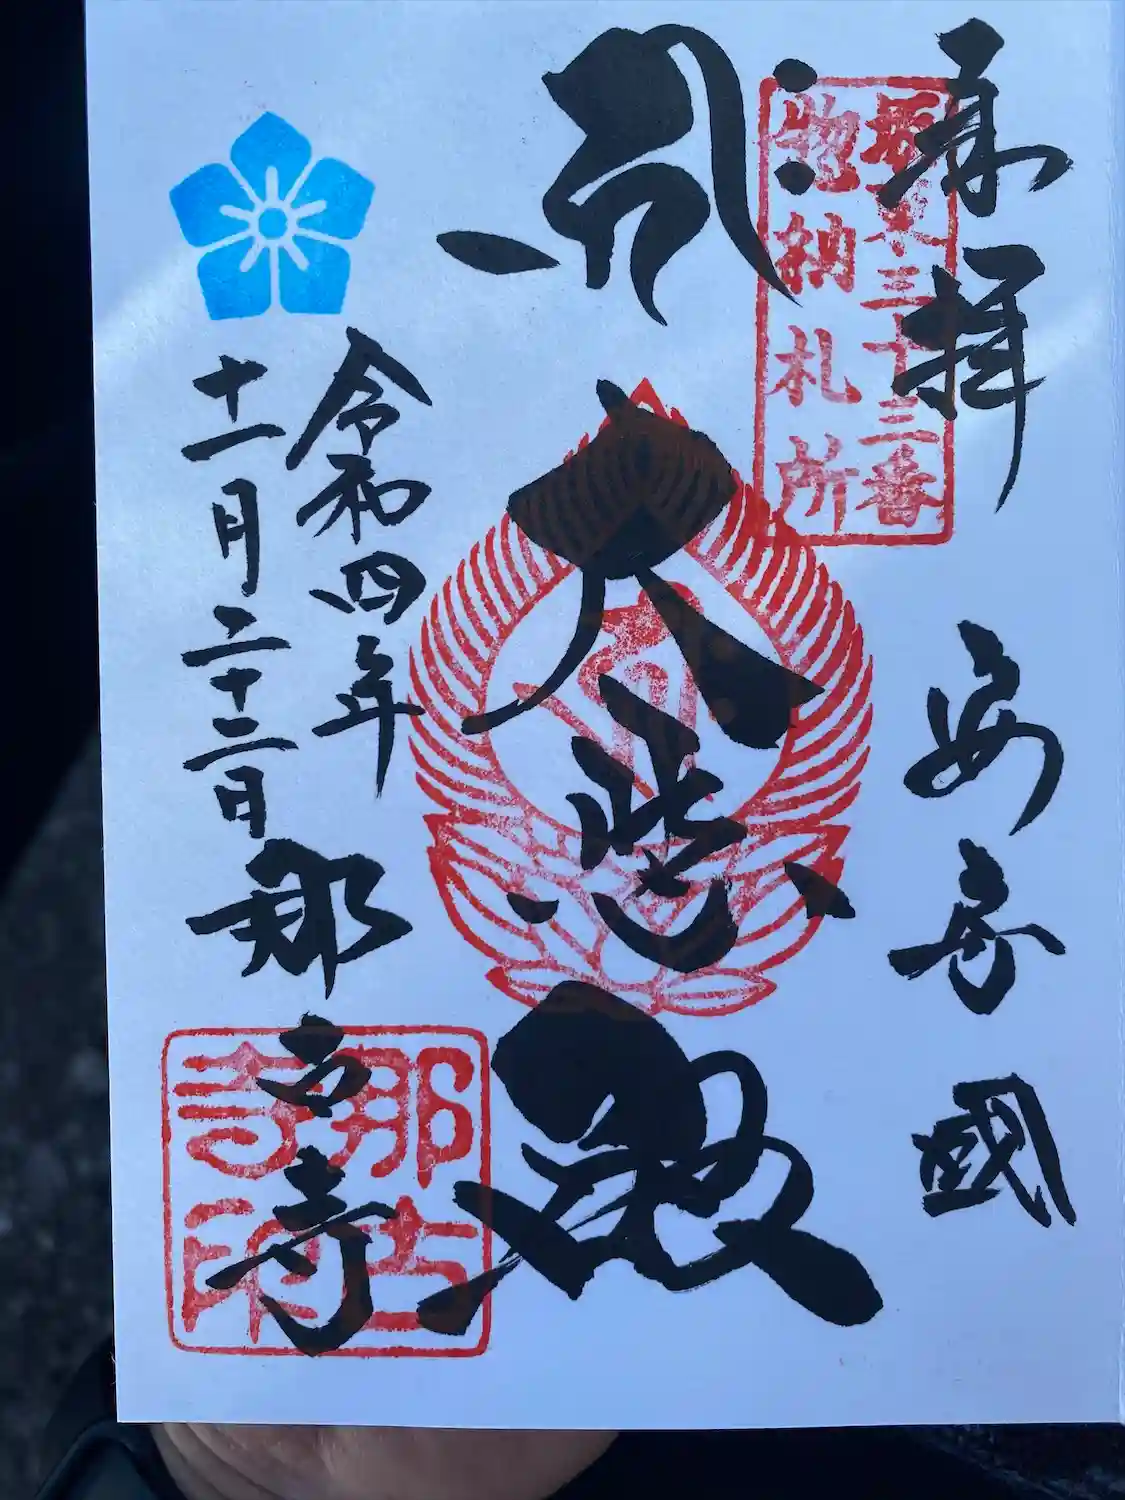 奉拝
安房國
坂東三十三番
惣納札所
大悲殿
令和四年
十一月二十二日
那古寺
那古
寺印